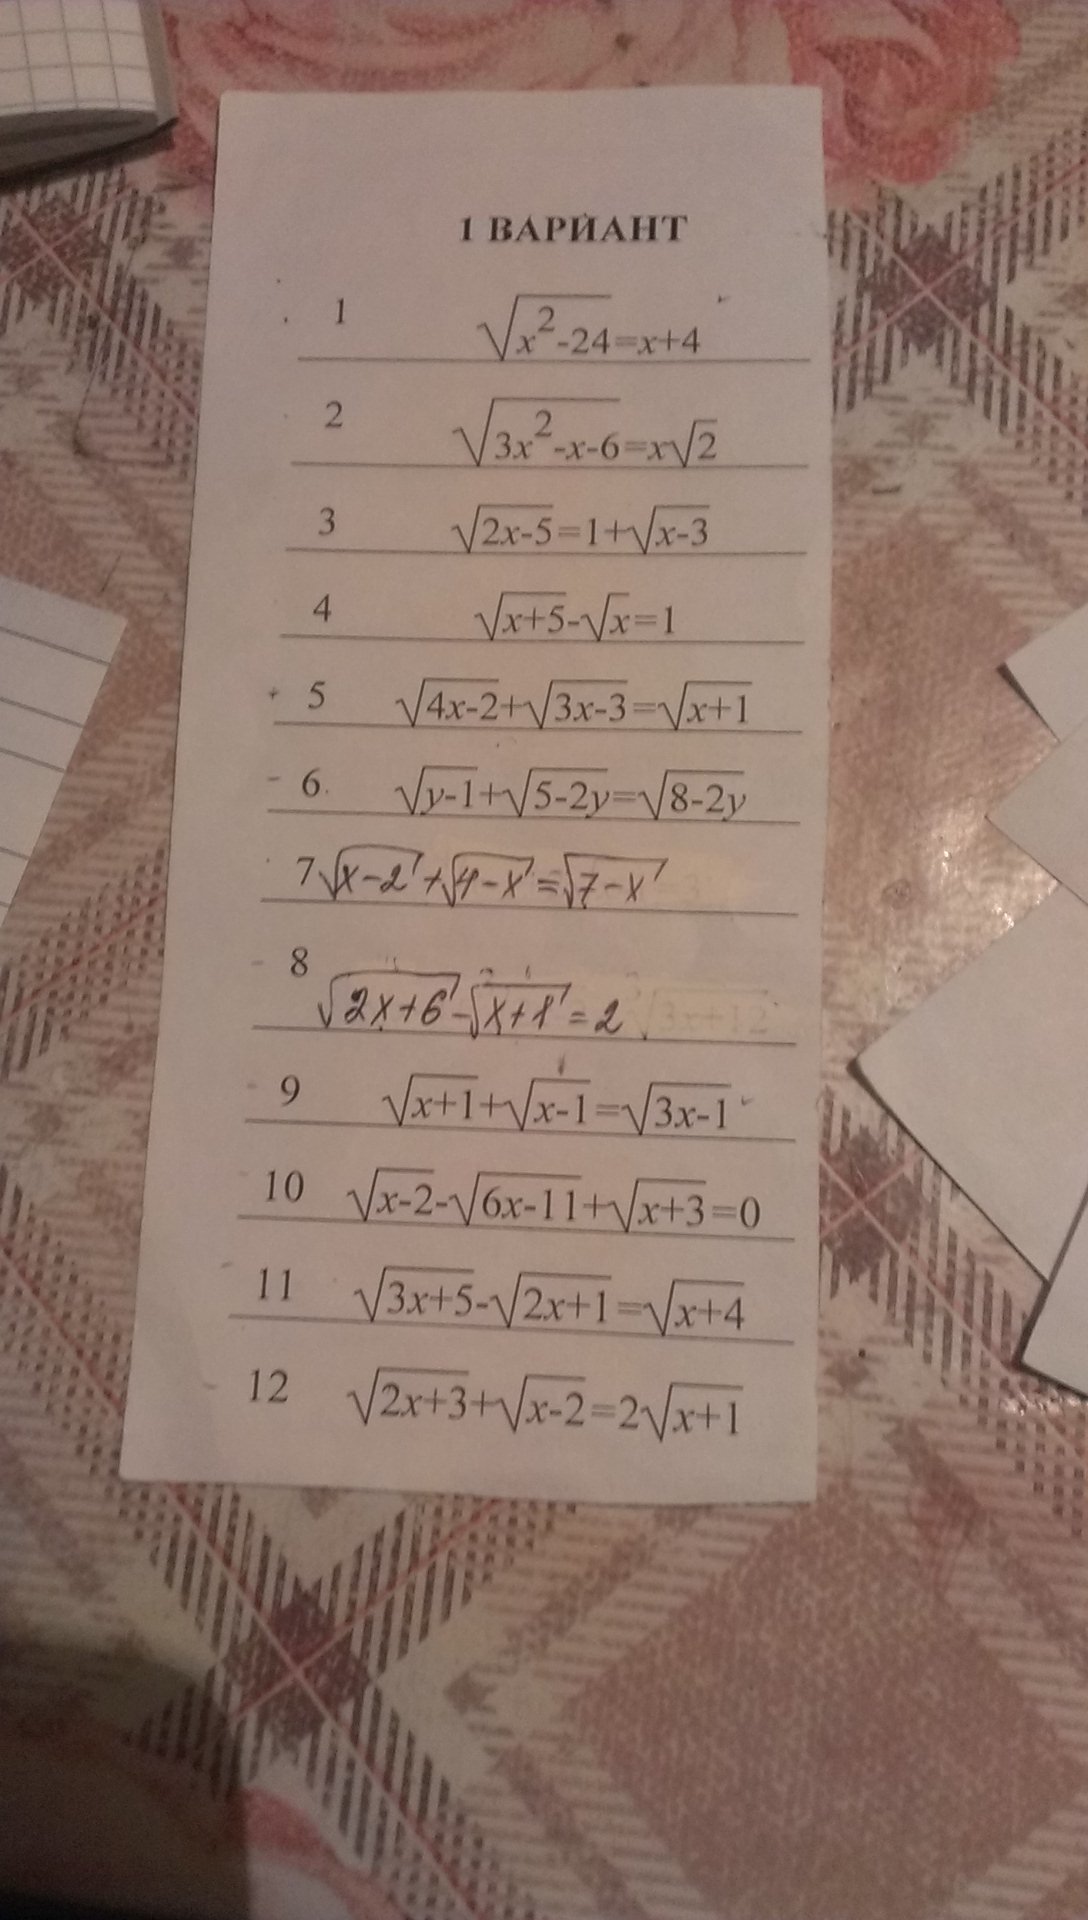 1 ВАРИАНТ
1 √(x²-24)=x+4
2 √(3x²-x-6)=x√2
3 √(2x-5)=1+√(x-3)
4 √(x+5)-√x=1
5 √(4x-2)+√(3x-3)=√(x+1)
6. √(y-1)+√(5-2y)=√(8-2y)
7 √(x-2)+√(4-x)=√(7-x)
8 √(2x+6)-√(x+1)=2
9 √(x+1)+√(x-1)=√(3x-1)
10 √(x-2)-√(6x-11)+√(x+3)=0
11 √(3x+5)-√(2x+1)=√(x+4)
12 √(2x+3)+√(x-2)=2√(x+1)